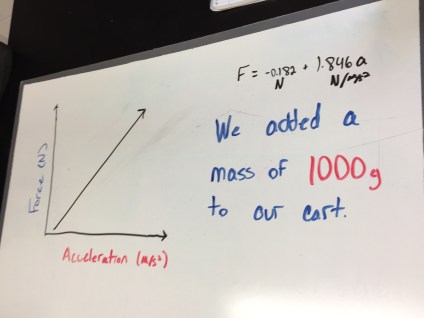 F = -0.182 + 1.846 a
N N/m/s²
We added a
mass of 1000g
to our cart.
Force (N)
Acceleration (m/s²)